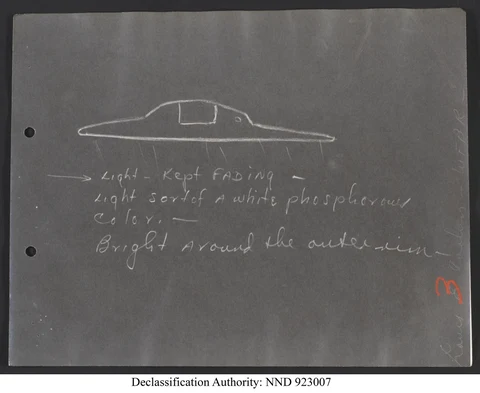 Light - Kept FADING -
Light sort of A white phosphorous
Color. -
Bright Around the outer rim -
3
Declassification Authority: NND 923007